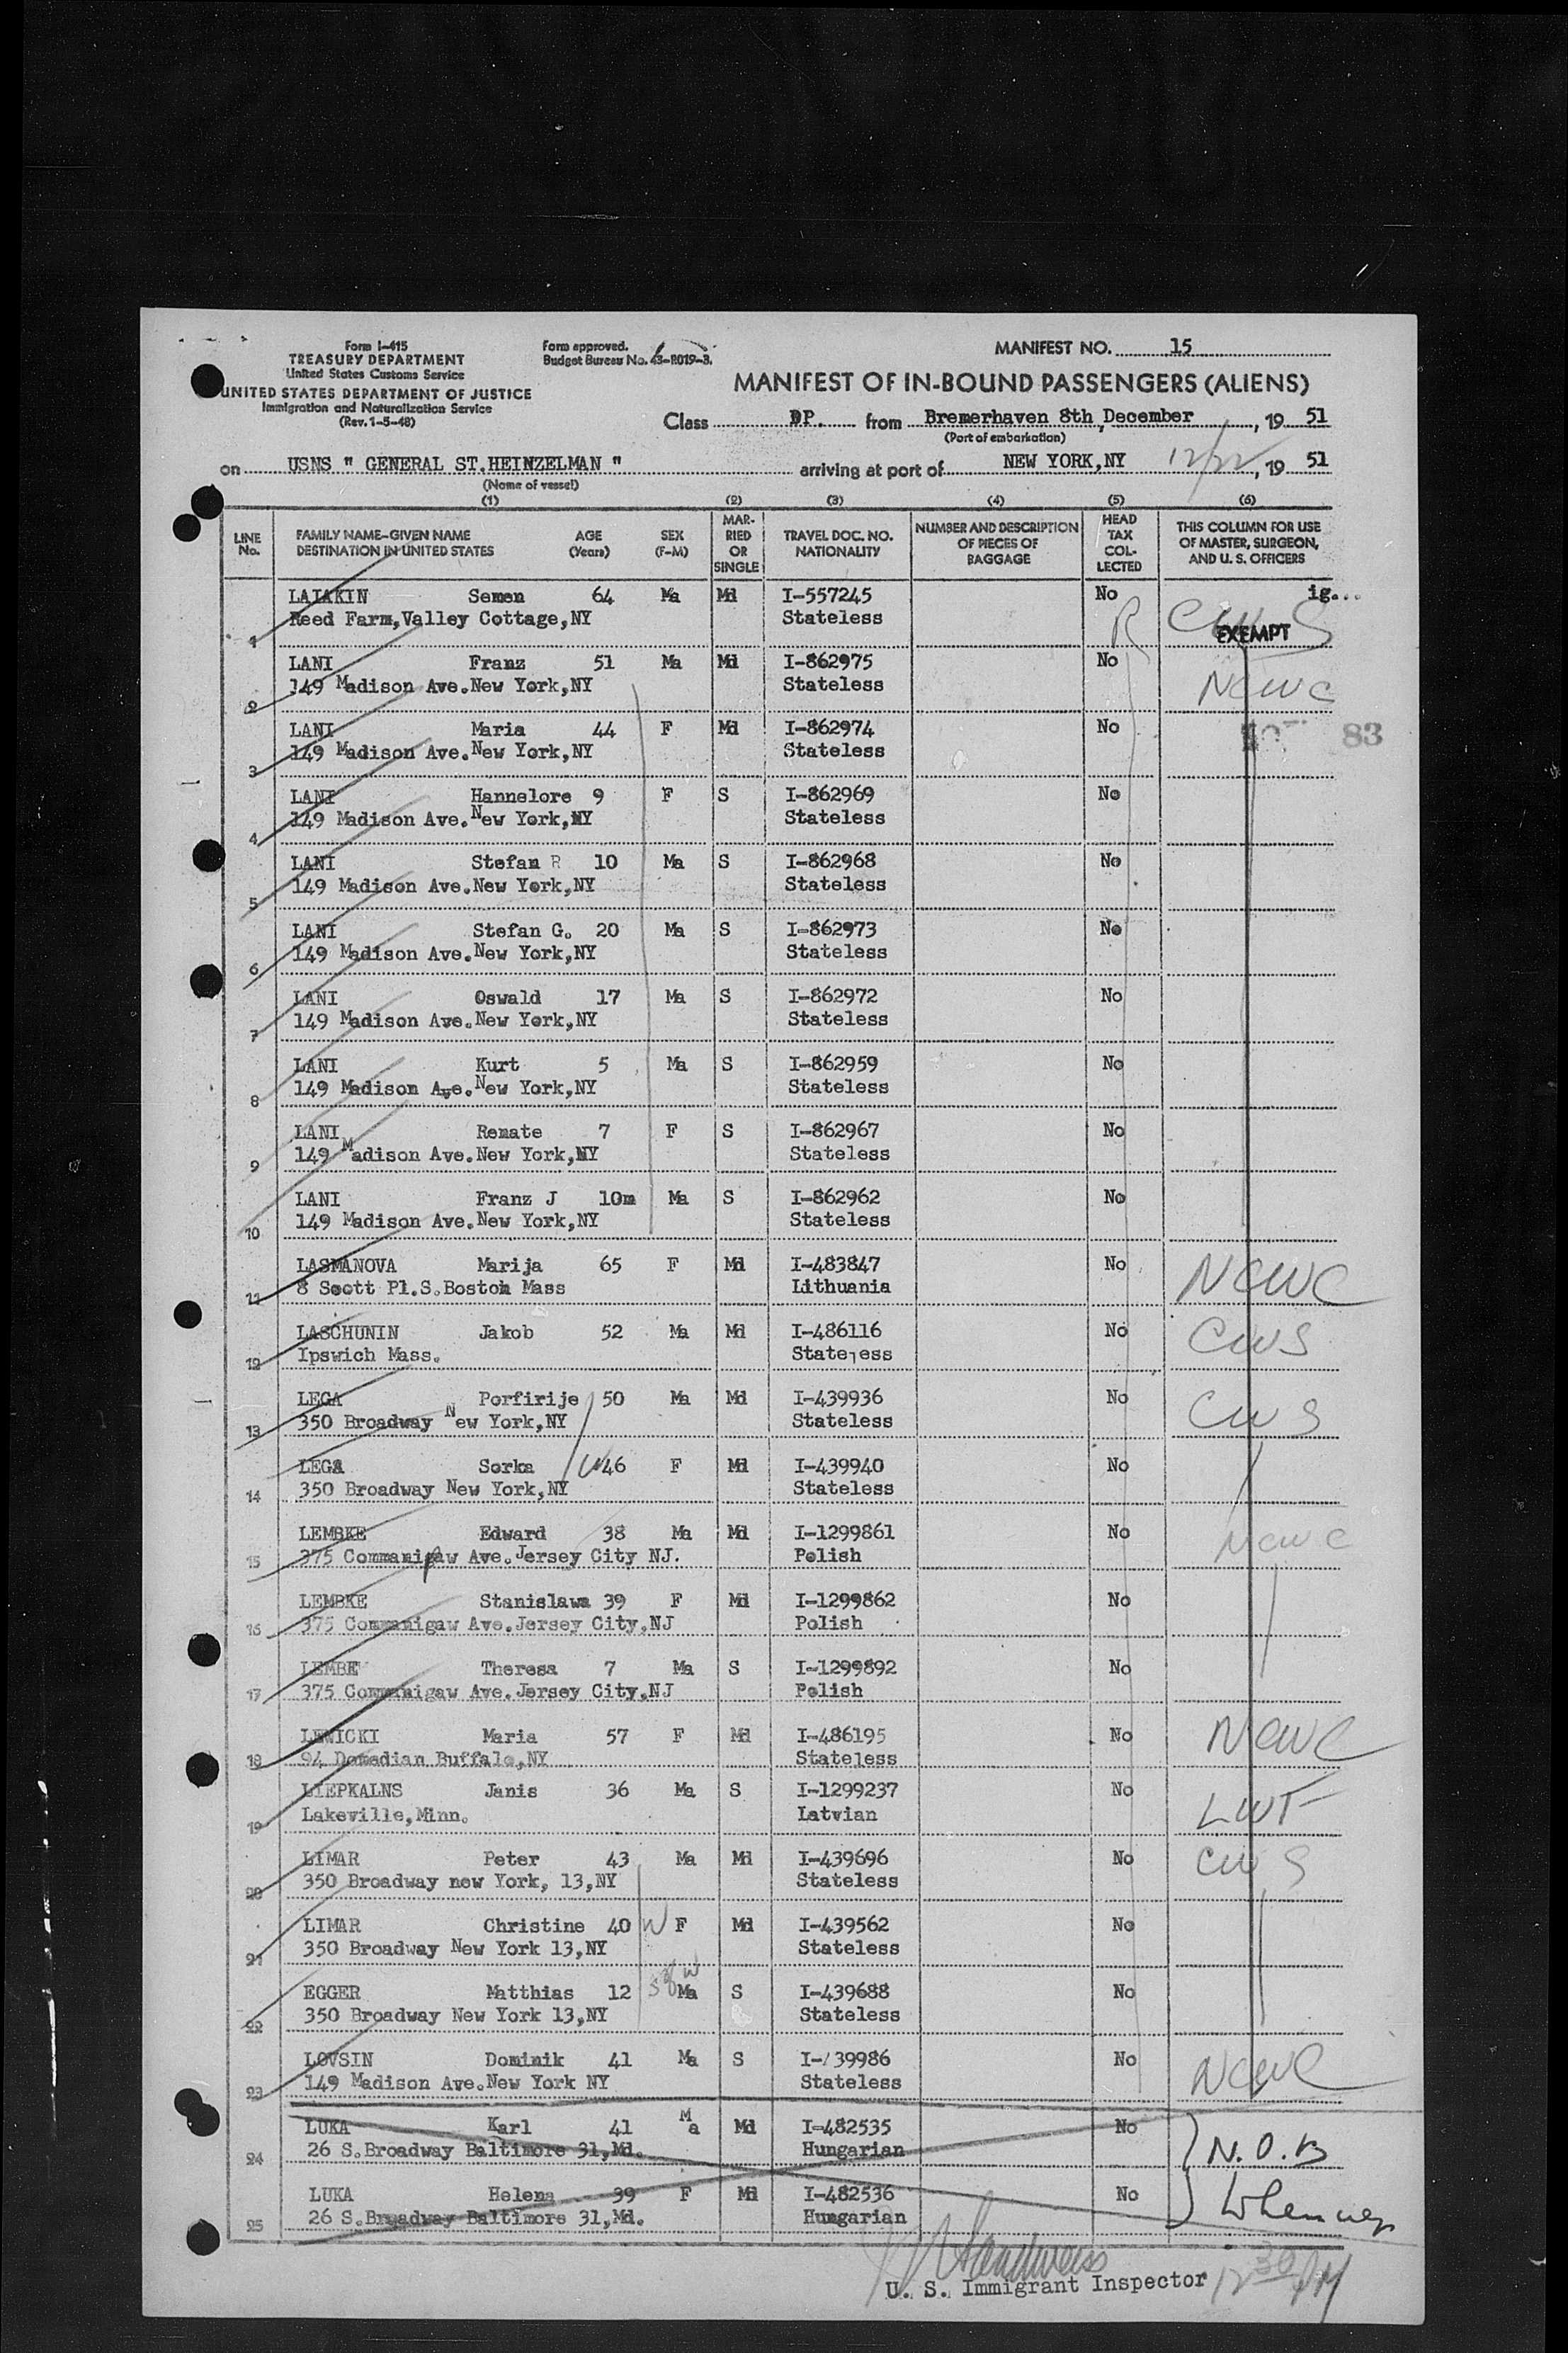 Form I-415
TREASURY DEPARTMENT
United States Customs Service
UNITED STATES DEPARTMENT OF JUSTICE
Immigration and Naturalization Service
(Rev. 1-5-48)
Form approved.
Budget Bureau No. 43-R019-3.
MANIFEST NO. 15
MANIFEST OF IN-BOUND PASSENGERS (ALIENS)
Class DP. from Bremerhaven 8th, December, 19 51
(Port of embarkation)
on USNS " GENERAL ST.HEINZELMAN " arriving at port of NEW YORK,NY 12/22, 19 51
(Name of vessel)
(1) (2) (3) (4) (5) (6)
LINE No. FAMILY NAME-GIVEN NAME DESTINATION IN UNITED STATES AGE (Years) SEX (F-M) MARRIED OR SINGLE TRAVEL DOC. NO. NATIONALITY NUMBER AND DESCRIPTION OF PIECES OF BAGGAGE HEAD TAX COLLECTED THIS COLUMN FOR USE OF MASTER, SURGEON, AND U. S. OFFICERS
LAIAKIN Semen 64 Ma Md I-557245 No ig...
1 Reed Farm,Valley Cottage,NY Stateless R CWS EXEMPT
LANI Franz 51 Ma Md I-862975 No
2 149 Madison Ave.New York,NY Stateless NCWC
LANI Maria 44 F Md I-862974 No 83
3 149 Madison Ave.New York,NY Stateless
LANI Hannelore 9 F S I-862969 No
4 149 Madison Ave.New York,NY Stateless
LANI Stefan R 10 Ma S I-862968 No
5 149 Madison Ave.New York,NY Stateless
LANI Stefan G. 20 Ma S I-862973 No
6 149 Madison Ave.New York,NY Stateless
LANI Oswald 17 Ma S I-862972 No
7 149 Madison Ave.New York,NY Stateless
LANI Kurt 5 Ma S I-862959 No
8 149 Madison Ave.New York,NY Stateless
LANI Renate 7 F S I-862967 No
9 149 Madison Ave.New York,NY Stateless
LANI Franz J 10m Ma S I-862962 No
10 149 Madison Ave.New York,NY Stateless
LASMANOVA Marija 65 F Md I-483847 No NCWC
11 8 Scott Pl.S.Boston Mass Lithuania
LASCHUNIN Jakob 52 Ma Md I-486116 No CWS
12 Ipswich Mass. Stateless
LEGA Porfirije 50 Ma Md I-439936 No CWS
13 350 Broadway New York,NY Stateless
LEGA Sorka W 46 F Md I-439940 No
14 350 Broadway New York,NY Stateless
LEMBKE Edward 38 Ma Md I-1299861 No NCWC
15 375 Commanipaw Ave.Jersey City NJ. Polish
LEMBKE Stanislawa 39 F Md I-1299862 No
16 375 Commanigaw Ave.Jersey City,NJ Polish
LEMBE Theresa 7 Ma S I-1299892 No
17 375 Commanigaw Ave.Jersey City.NJ Polish
LEWICKI Maria 57 F Md I-486195 No NCWC
18 94 Domedian Buffalo,NY Stateless
LIEPKALNS Janis 36 Ma S I-1299237 No LWF
19 Lakeville,Minn. Latvian
LIMAR Peter 43 Ma Md I-439696 No CWS
20 350 Broadway new York, 13,NY Stateless
LIMAR Christine 40 W F Md I-439562 No
21 350 Broadway New York 13,NY Stateless
EGGER Matthias 12 S of W Ma S I-439688 No
22 350 Broadway New York 13,NY Stateless
LOVSIN Dominik 41 Ma S I-/39986 No NCWC
23 149 Madison Ave.New York NY Stateless
LUKA Karl 41 Ma Md I-482535 No
24 26 S.Broadway Baltimore 31,Md. Hungarian N.O.B
LUKA Helena 39 F Md I-482536 No
25 26 S.Broadway Baltimore 31,Md. Hungarian
U. S. Immigrant Inspector 12 30 PM